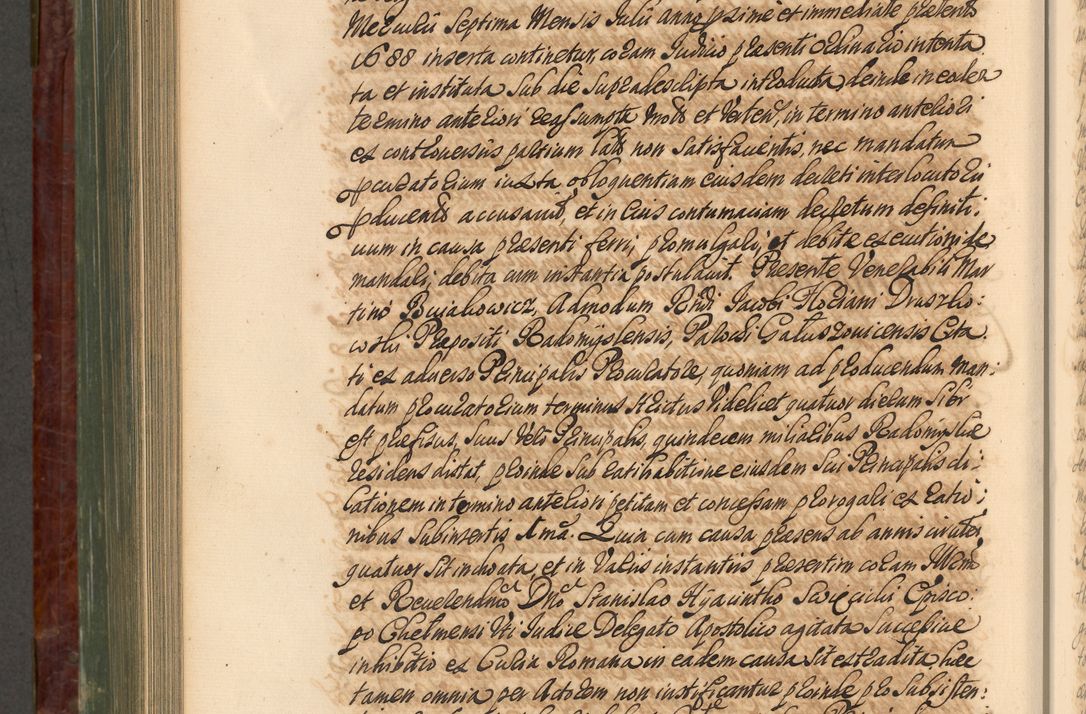 Mercurii Septima Mensis Julii anno pxime et immediate praesenti
1688 inserta continetur, coram Judicio praesenti Ordinario intenta
ta et instituta sub die supradescripta introducta, deinde in eoder
termino anteriori reassumpta Mods et Verten, in termino anteriori
ex controversiis partium lato non satisfacientis, nec mandatum
procuratorium iuxta obloquentiam eiusdem decreti interlocutorii
producento accusavit, et in eius contumaciam decretum definiti:
vum in causa praesenti ferri, promulgari, et debitae executioni de
mandari, debita cum instantia postulavit. Praesente Venerabili Mar
tino Bujakowicz, Admodum Rndi Jacobi Floriani Druszko:
wski Praepositi Radomyslensis, Parochi Gatuszovicensis Cita
ti ex adverso Principalis Procuratore, quoniam ad producendum Man:
datum procuratorium terminus strictus videlicet quatuor dierum sibi
est praefixus, suus vero Principalis, quindecem miliaribus Radomysliae
residens distat, proinde sub ratihabitione eiusdem sui Principalis di:
lationem in termino anteriori petitam et concessam prorogari ex ratio:
nibus subinsertis 1ma. Quia cum causa praesens ab annis circiter
quatuor sit inchoata, et in variis instantiis praesertim coram Illmo
et Reverendmo Dno Stanislao Hyacintho Swięcicki Episco:
po Chelmensi uti Judice Delegato Apostolico agitata successive
inhibitio ex Curia Romana in eadem causa sit extradita, haec
tamen omnia per Actorem non iustificantur proinde pro subsisten: